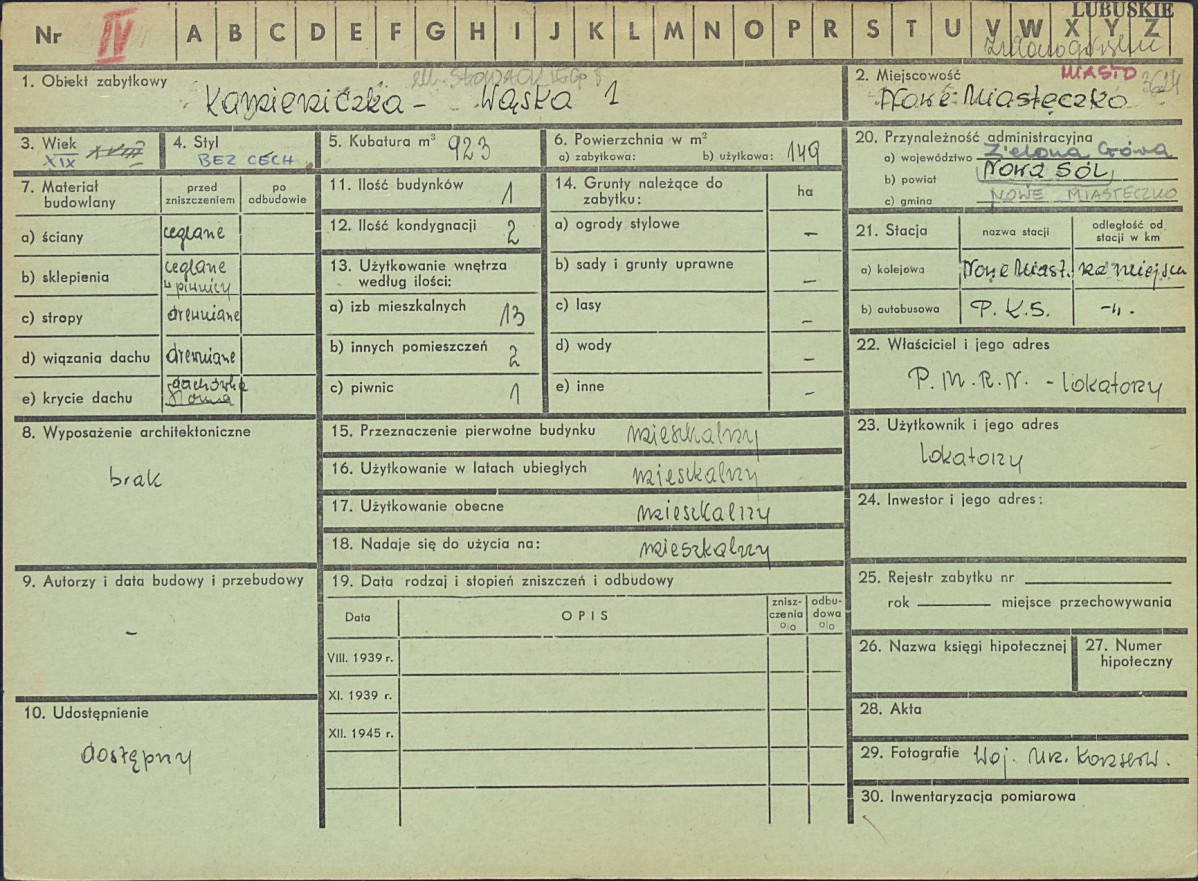 LUBUSKIE
Nr IV A B C D E F G H I J K L M N O P R S T U V W X Y Z
1. Obiekt zabytkowy
Kamieniczka - Wąska 1
2. Miejscowość MIASTO
Nowe Miasteczko
3. Wiek
XIX XVIII
4. Styl
BEZ CECH
5. Kubatura m³ 923
6. Powierzchnia w m²
a) zabytkowa: b) użytkowa: 149
20. Przynależność administracyjna
a) województwo Zielona Góra
b) powiat Nowa Sól
c) gmina NOWE MIASTECZKO
7. Materiał budowlany
przed zniszczeniem
po odbudowie
a) ściany ceglane
b) sklepienia ceglane
w piwnicy
c) stropy drewniane
d) wiązania dachu drewniane
e) krycie dachu dachówka
11. Ilość budynków 1
12. Ilość kondygnacji 2
13. Użytkowanie wnętrza
według ilości:
a) izb mieszkalnych 13
b) innych pomieszczeń 2
c) piwnic 1
14. Grunty należące do
zabytku:
ha
a) ogrody stylowe –
b) sady i grunty uprawne –
c) lasy –
d) wody –
e) inne –
21. Stacja
nazwa stacji
odległość od
stacji w km
a) kolejowa Nowe Miast. na miejscu
b) autobusowa P.K.S. -„.
22. Właściciel i jego adres
P.M.R.N. - lokatorzy
8. Wyposażenie architektoniczne
brak
15. Przeznaczenie pierwotne budynku mieszkalny
16. Użytkowanie w latach ubiegłych mieszkalny
17. Użytkowanie obecne mieszkalny
18. Nadaje się do użycia na: mieszkalny
23. Użytkownik i jego adres
lokatorzy
24. Inwestor i jego adres:
9. Autorzy i data budowy i przebudowy
–
19. Data rodzaj i stopień zniszczeń i odbudowy
Data
OPIS
znisz-
czenia
o/o
odbu-
dowa
o/o
VIII. 1939 r.
XI. 1939 r.
XII. 1945 r.
25. Rejestr zabytku nr
rok miejsce przechowywania
26. Nazwa księgi hipotecznej
27. Numer
hipoteczny
10. Udostępnienie
dostępny
28. Akta
29. Fotografie Woj. Urz. Konserw.
30. Inwentaryzacja pomiarowa